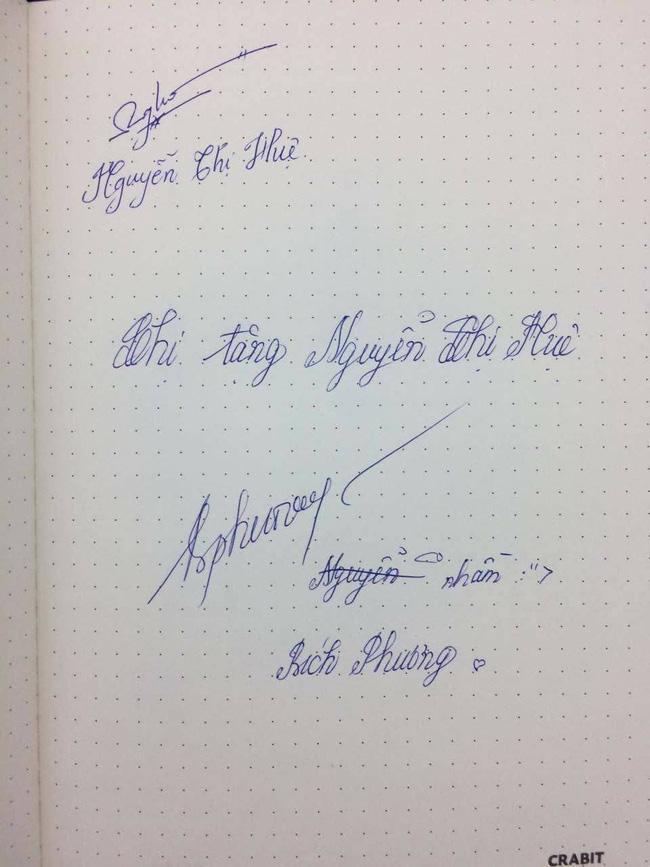 Nguyễn Thị Huệ
tặng Nguyển Thị Huệ
Nguyển nhầm :">
Bích Phương ♡
CRABIT